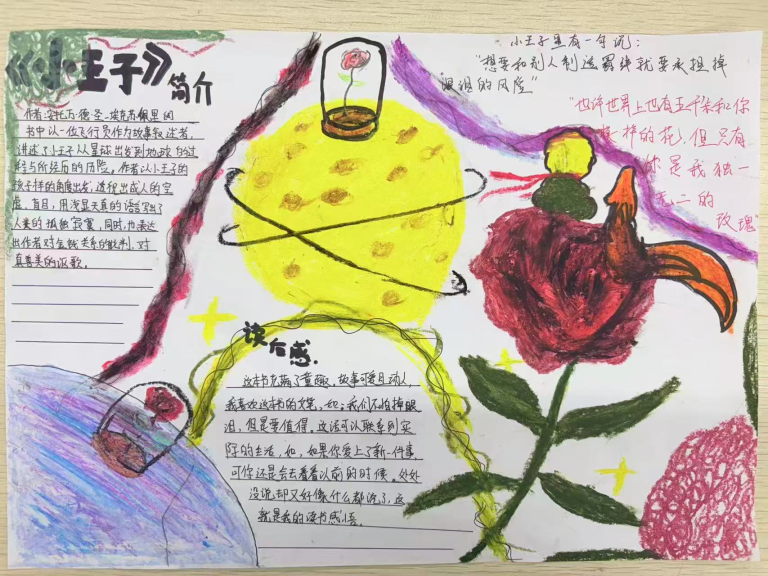 《小王子》
简介
作者:安托万·德·圣-埃克苏佩里的
书中以一位飞行员作为故事叙述者,
讲述了小王子从星球出发到地球的过
程与所经历的历险。作者以小王子的
孩子样的角度出发,透视出成人的空
虚、盲目,用浅显天真的语言写出了
人类的孤独寂寞,同时,也表达
出作者对金钱关系的批判,对
真善美的讴歌。
小王子里有一句说:
“想要和别人制造羁绊就要承担掉
眼泪的风险”
“也许世界上也有五千朵和你
一样的花,但只有
你是我独一
无二的
玫瑰”
读后感.
这本书充满了童趣,故事可爱且动人,
我喜欢这本书的文笔,如:我们不怕掉眼
泪,但是要值得。这话可以联系到实
际的生活,如,如果你爱上了新一件事
可你还是会去看看以前的时候。处处
没说却又好像什么都说了,这
就是我的读书感悟。